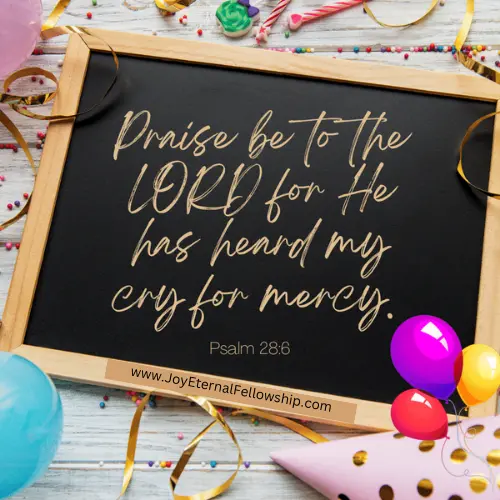 Praise be to the
LORD for He
has heard my
cry for mercy.
Psalm 28:6
www.JoyEternalFellowship.com